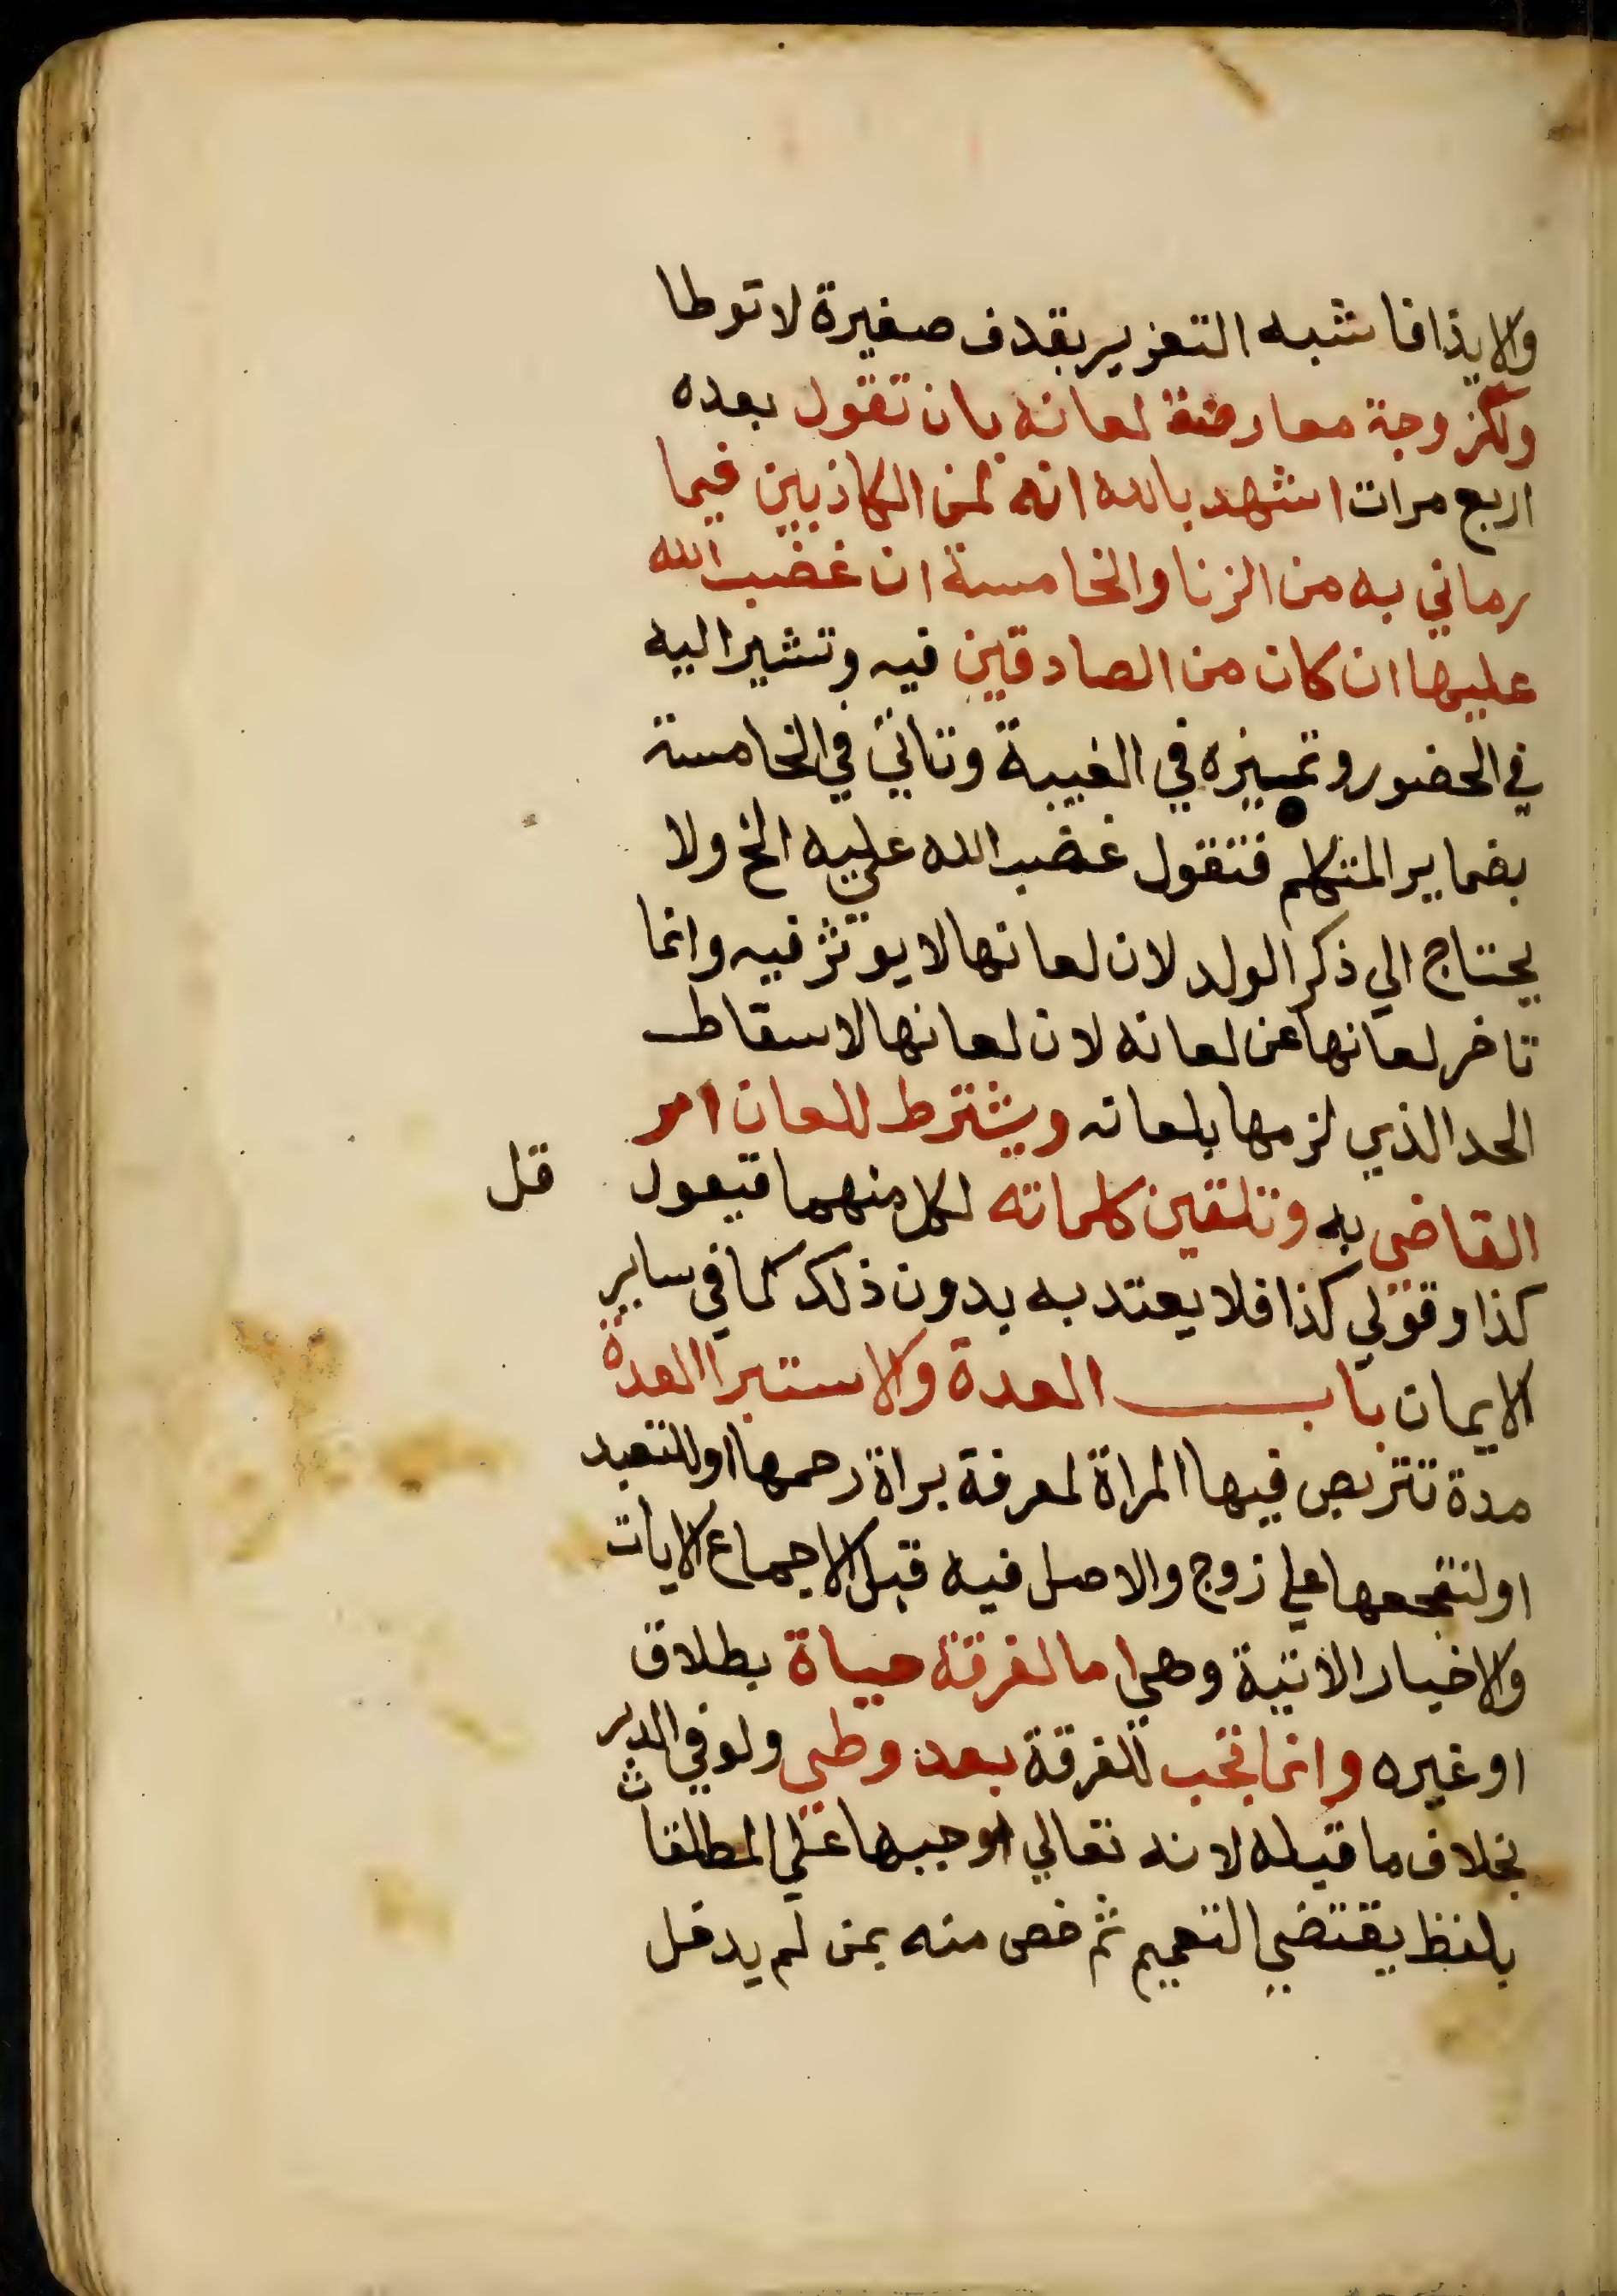 والايذا فاشبه التعزير بقدف صغيرة لا توطا
ولزوجة معارضة لعانه بان تقول بعده
اربع مرات اشهد بالله انه لمن الكاذبين فيما
رماني به من الزنا والخامسة ان غضب الله
عليها ان كان من الصادقين فيه وتشير اليه
في الحضور وتميزه في الغيبة وتاتي في الخامسة
بضماير المتكلم فتقول غضب الله عليه الخ ولا
يحتاج الي ذكر الولد لان لعانها لا يوثر فيه وانما
تاخر لعانها عن لعانه لان لعانها لاسقاط
الحد الذي لزمها بلعانه ويشترط للعان امر
القاضي به وتلقين كلماته لكل منهما فيقول قل
كذا وقولي كذا فلا يعتد به بدون ذلك كما في ساير
الايمان باب العدة والاستبرا العدة
مدة تتربص فيها المراة لمعرفة براة رحمها او للتعبد
او لتفجعها علي زوج والاصل فيه قبل الاجماع الايات
والاخبار الاتية وهي اما لفرقة حياة بطلاق
او غيره وانما تجب للفرقة بعد وطي ولو في الدبر
بخلاف ما قبله لانه تعالي اوجبها علي المطلقات
بلفظ يقتضي التعميم ثم خص منه بمن لم يدخل